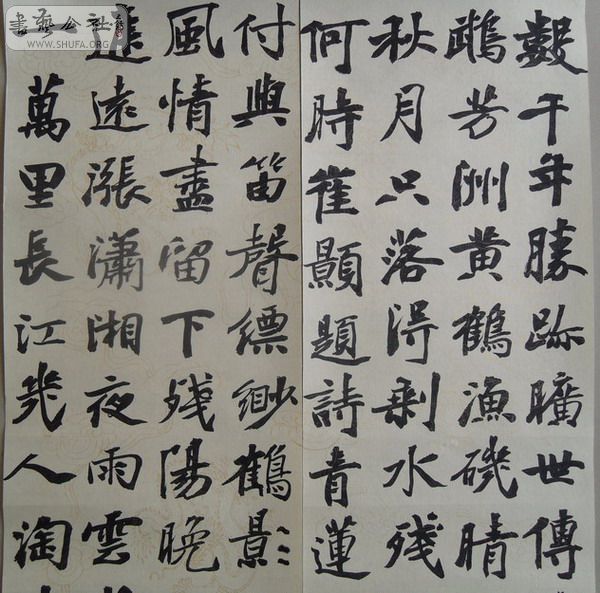 數千年勝跡曠世傳
鵡芳洲黃鶴漁磯晴
秋月只落得剩水殘
何時崔顥題詩青蓮
付與笛聲縹緲鶴影
風情盡留下殘陽晚
遠漲瀟湘夜雨雲
一萬里長江幾人淘
書藝公社
WWW.SHUFA.ORG